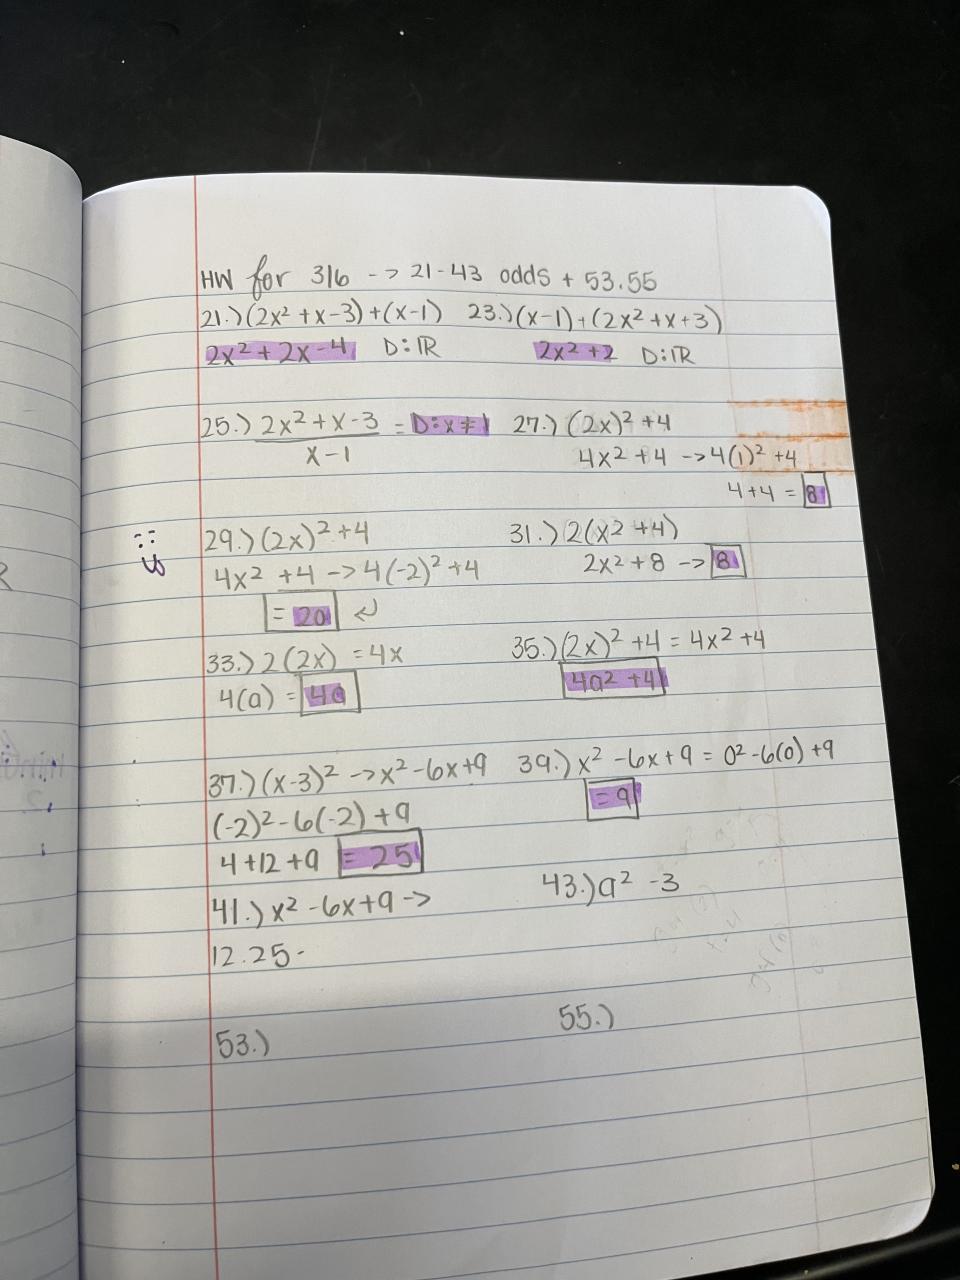 HW for 316 -> 21-43 odds + 53.55
21.) (2x² + x - 3) + (x-1) 23.) (x-1) + (2x² + x + 3)
2x² + 2x - 4 D: ℝ 2x² + 2 D: ℝ
25.) 2x² + x - 3 = D: x ≠ 1 27.) (2x)² + 4
x - 1 4x² + 4 -> 4(1)² + 4
4 + 4 = 8
29.) (2x)² + 4 31.) 2(x² + 4)
4x² + 4 -> 4(-2)² + 4 2x² + 8 -> 8
= 20
33.) 2(2x) = 4x 35.) (2x)² + 4 = 4x² + 4
4(a) = 4a 4a² + 4
37.) (x-3)² -> x² - 6x + 9 39.) x² - 6x + 9 = 0² - 6(0) + 9
(-2)² - 6(-2) + 9 = 9
4 + 12 + 9 = 25
41.) x² - 6x + 9 -> 43.) a² - 3
12.25 -
53.) 55.)